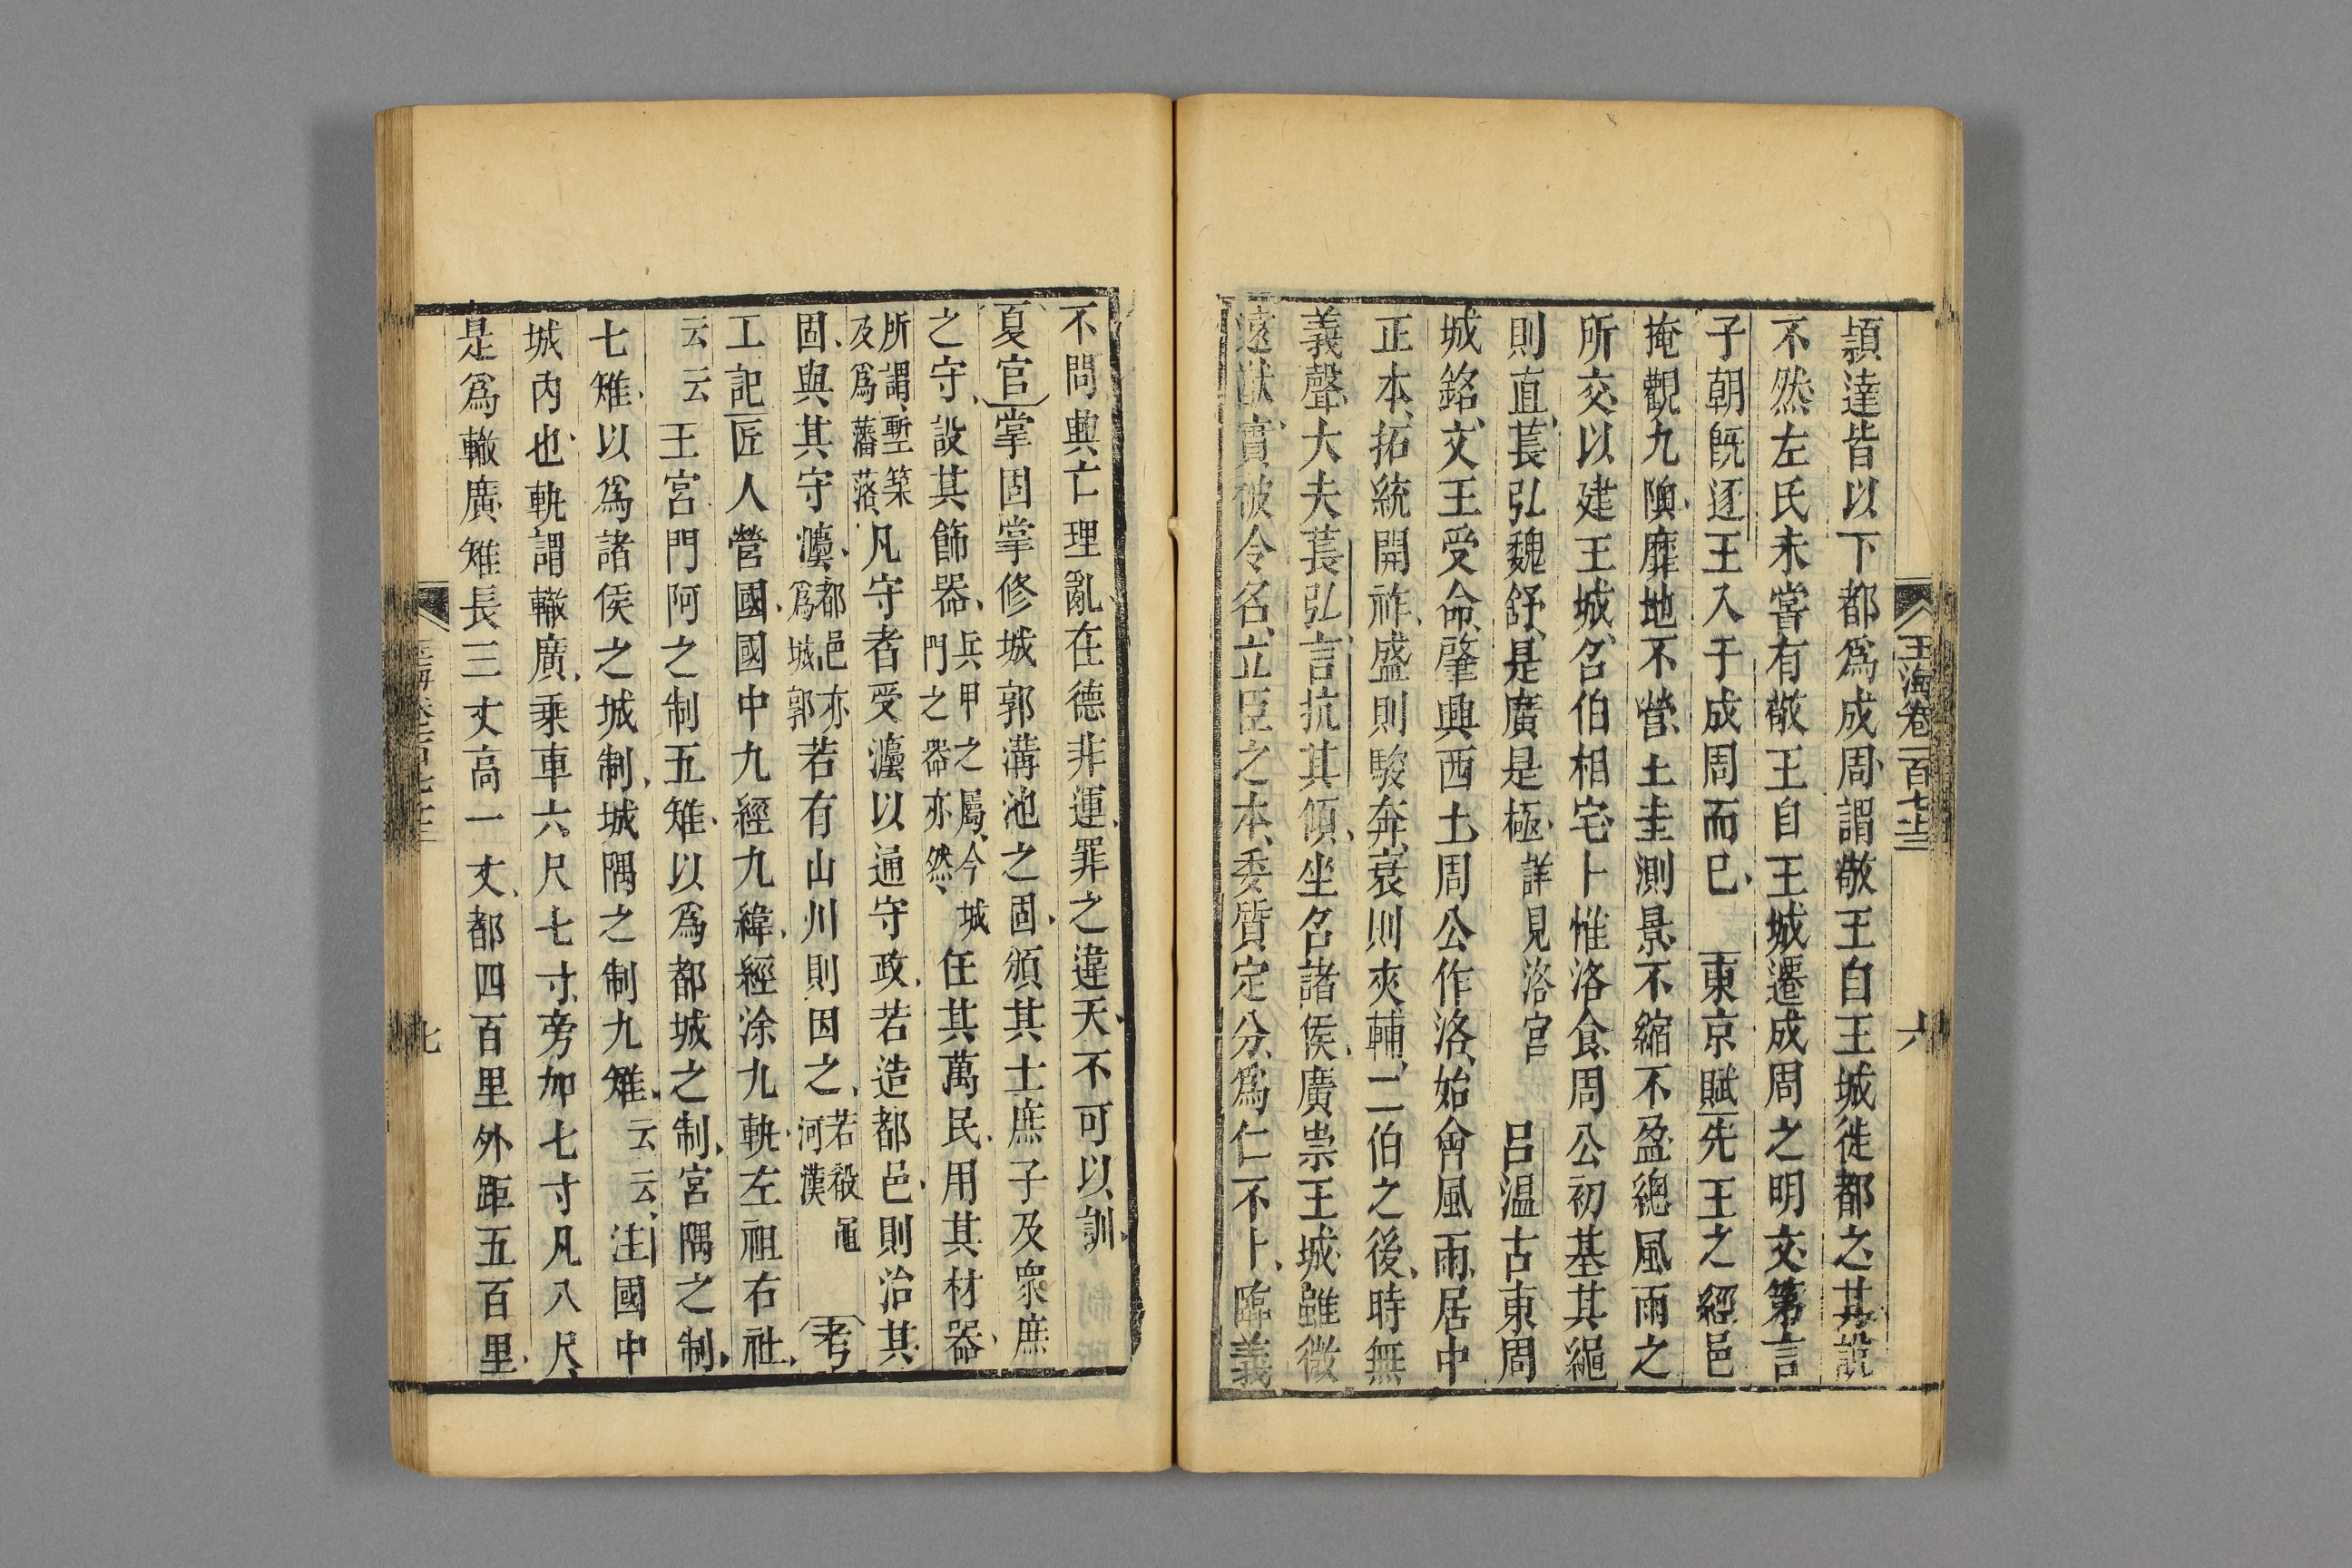 玉海卷一百七十三
六
頴達皆以下都爲成周謂敬王自王城徙都之其說
不然左氏未嘗有敬王自王城遷成周之明文第言
子朝旣逐王入于成周而已 東京賦先王之經邑
掩觀九隩靡地不營土圭測景不縮不盈總風雨之
所交以建王城召伯相宅卜惟洛食周公初基其繩
則直萇弘魏舒是廣是極詳見洛宮 呂温古東周
城銘文王受命肇興西土周公作洛始會風雨居中
正本拓統開祚盛則駿奔衰則夾輔二伯之後時無
義聲大夫萇弘言抗其傾坐召諸侯廣崇王城雖微
遠猷實被令名立臣之本委質定分爲仁不上臨義
不問興亡理亂在德非運罪之違天不可以訓
夏官掌固掌修城郭溝池之固頒其士庶子及衆庶
之守設其飾器兵甲之屬今城門之器亦然任其萬民用其材器
所謂塹築及爲藩落凡守者受灋以通守政若造都邑則治其
固與其守灋都邑亦爲城郭若有山川則因之若殽黽河漢 考
工記匠人營國國中九經九緯經涂九軌左祖右社
云云王宮門阿之制五雉以爲都城之制宮隅之制
七雉以爲諸侯之城制城隅之制九雉云云注國中
城內也軌謂轍廣乘車六尺七寸旁加七寸凡八尺
是爲轍廣雉長三丈高一丈都四百里外距五百里
七